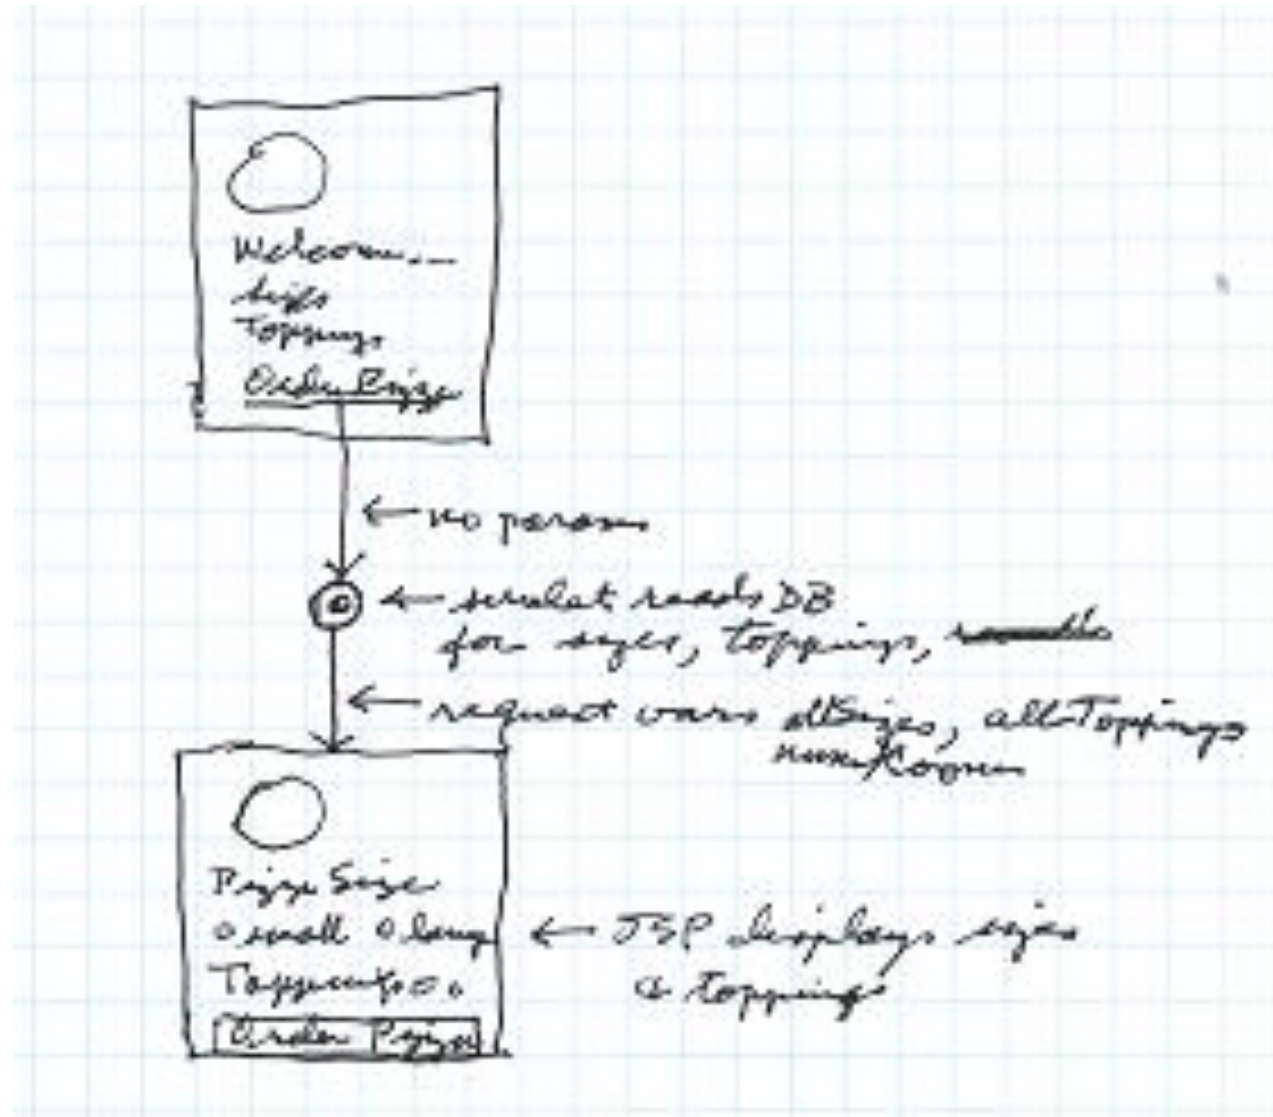 Welcome...
Toppings
Order Pizza
← no params
← servlet reads DB
for sizes, toppings,
← request vars allSizes, allToppings
numRooms
Pizza Size
o small o large
Toppings o o o
Order Pizza
← JSP displays sizes
& toppings